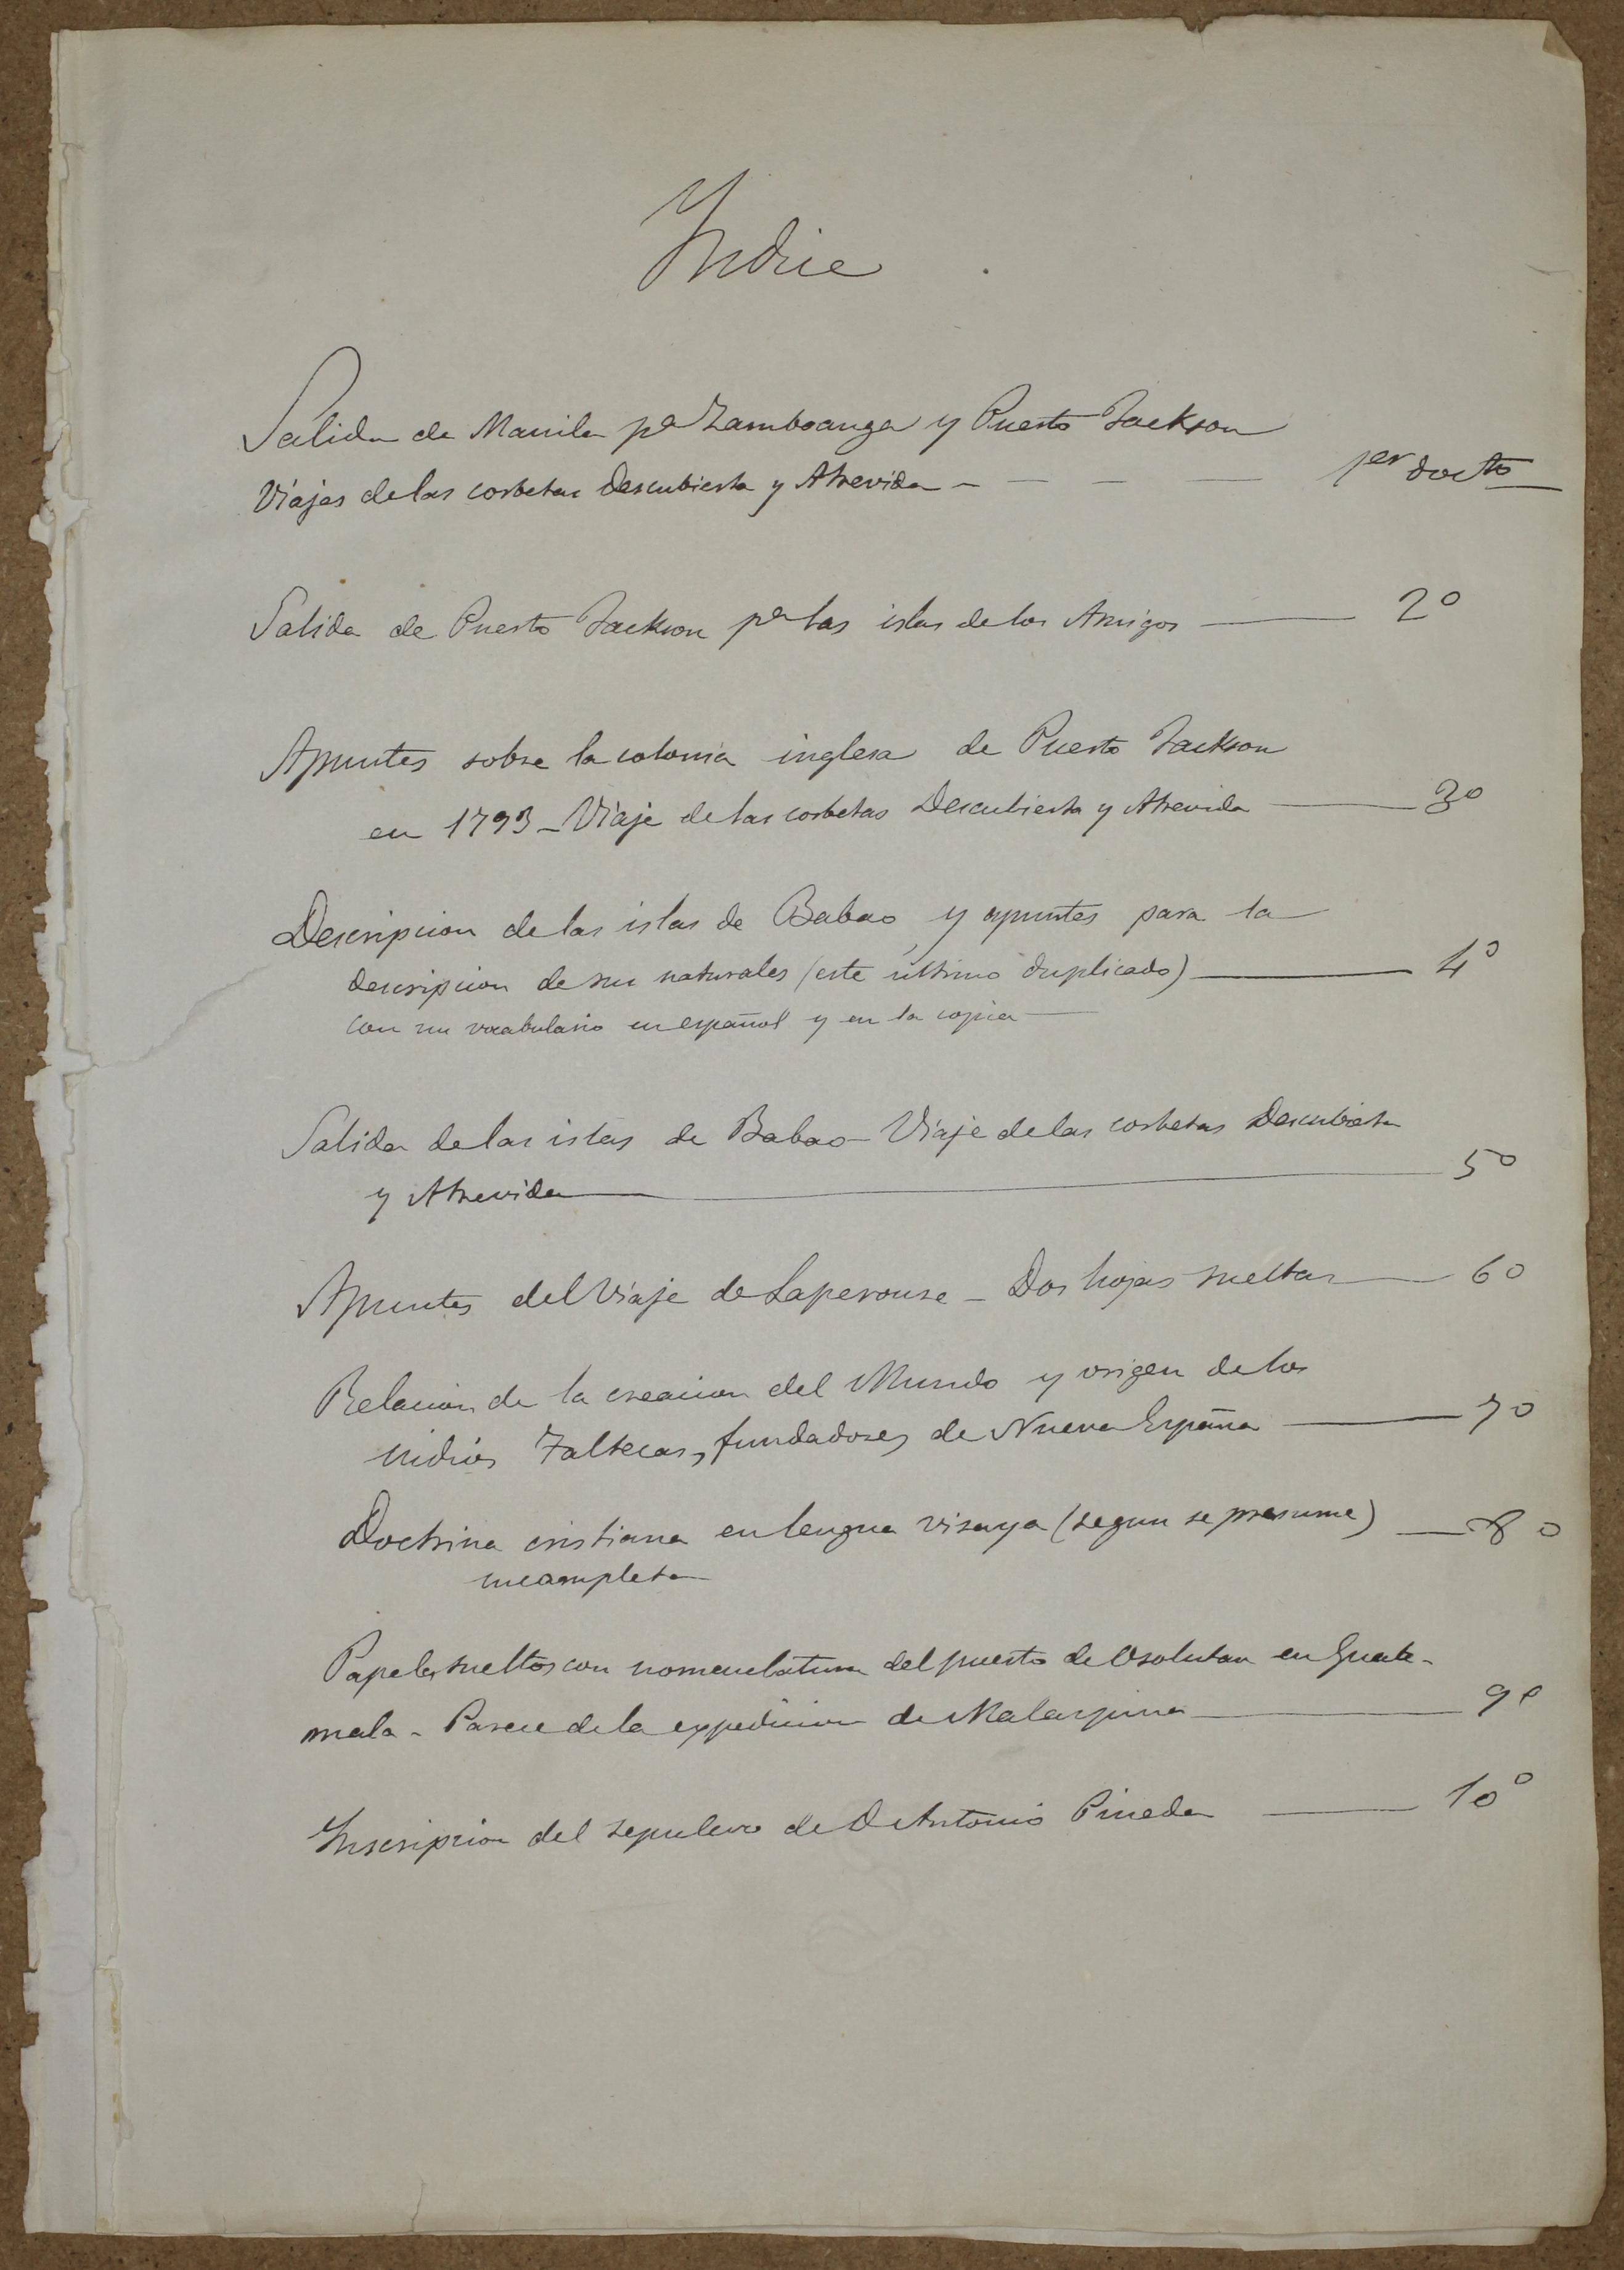 Yndice
Salida de Manila pa Zamboanga y Puerto Jackson
Viajes de las corbetas Descubierta y Atrevida - — — — 1er docto
Salida de Puerto Jackson pa las islas de los Amigos — 2º
Apuntes sobre la colonia inglesa de Puerto Jackson
en 1793 - Viaje de las corbetas Descubierta y Atrevida — 3º
Descripcion de las islas de Babao y apuntes para la
descripcion de sus naturales (este último duplicado) — 4º
con un vocabulario en español y en la copia —
Salida de las islas de Babao - Viaje de las corbetas Descubierta
y Atrevida — 5º
Apuntes del Viaje de Laperouse - Dos hojas sueltas — 6º
Relacion de la creacion del Mundo y origen de los
indios Taltecas, fundadores de Nueva España — 7º
Doctrina cristiana en lengua visaya (segun se presume) — 8º
incompleta
Papeles sueltos con nomenclatura del puerto de Osolutan en Guate-
mala - Parece de la expedicion de Malaspina — 9º
Inscripcion del sepulcro de D Antonio Pineda — 10º